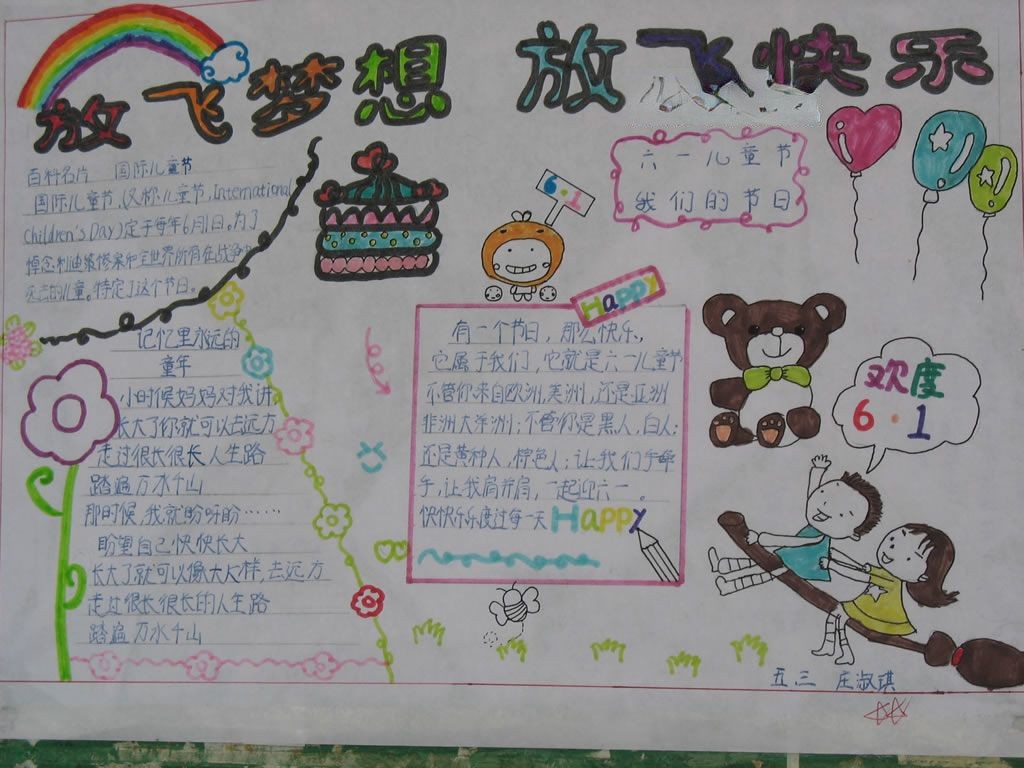 放飞梦想 放飞快乐
百科名片 国际儿童节
国际儿童节,(又称儿童节,International
Children's Day)定于每年6月1日。为了
悼念利迪策惨案和全世界所有在战争中
死去的儿童。特定了这个节日。
记忆里永远的
童年
小时候妈妈对我讲
长大了你就可以去远方
走过很长很长人生路
踏遍万水千山
那时候,我就盼呀盼……
盼望自己快快长大
长大了就可以像大人样,去远方
走过很长很长的人生路
踏遍万水千山
6·1
六一儿童节
我们的节日
Happy
有一个节日,那么快乐,
它属于我们,它就是六一儿童节
不管你来自欧洲,美洲,还是亚洲
非洲大洋洲;不管你是黑人,白人;
还是黄种人,棕色人;让我们手牵
手,让我肩并肩,一起迎六一。
快快乐乐度过每一天 Happy
欢度
6·1
五三 庄淑琪